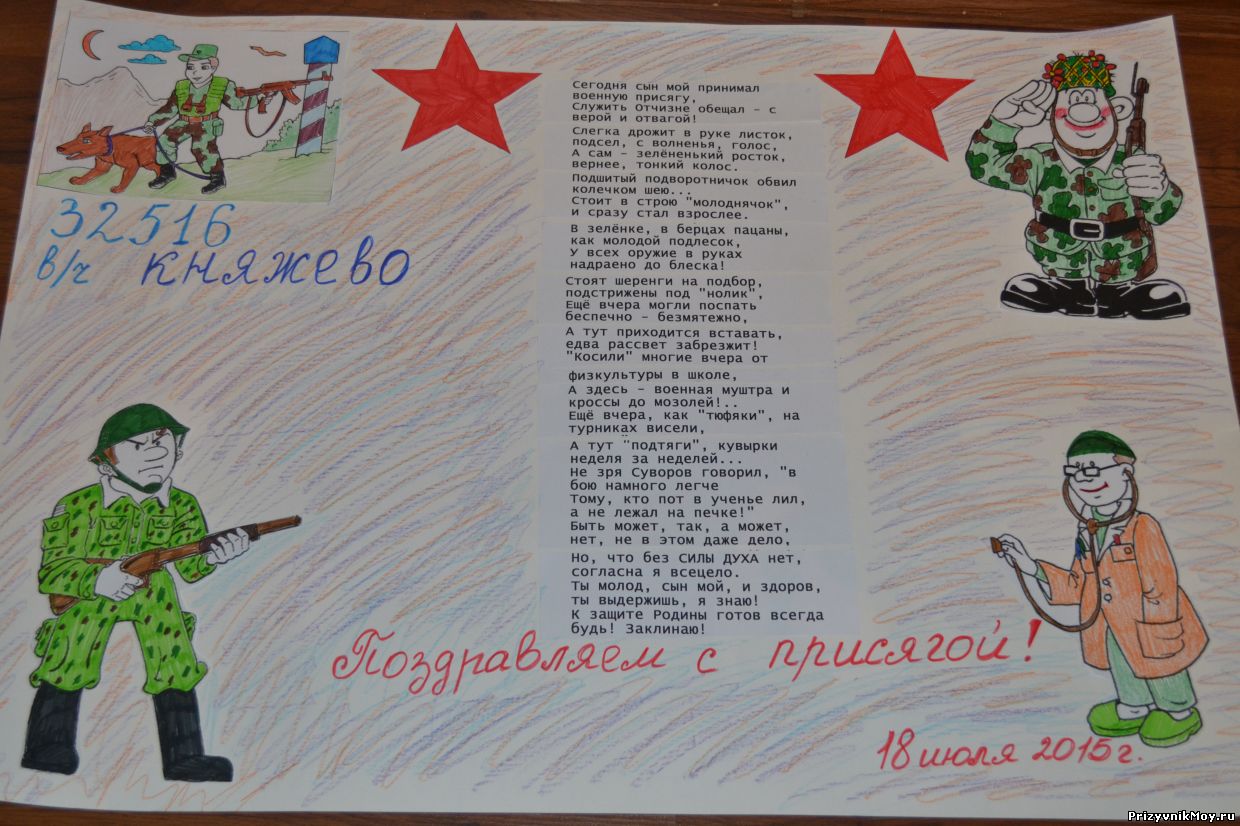 32516
в/ч княжево
Сегодня сын мой принимал
военную присягу,
Служить Отчизне обещал - с
верой и отвагой!
Слегка дрожит в руке листок,
подсел, с волненья, голос,
А сам - зелёненький росток,
вернее, тонкий колос.
Подшитый подворотничок обвил
колечком шею...
Стоит в строю "молоднячок",
и сразу стал взрослее.
В зелёнке, в берцах пацаны,
как молодой подлесок,
У всех оружие в руках
надраено до блеска!
Стоят шеренги на подбор,
подстрижены под "нолик",
Ещё вчера могли поспать
беспечно - безмятежно,
А тут приходится вставать,
едва рассвет забрезжит!
"Косили" многие вчера от
физкультуры в школе,
А здесь - военная муштра и
кроссы до мозолей!..
Ещё вчера, как "тюфяки", на
турниках висели,
А тут "подтяги", кувырки
неделя за неделей...
Не зря Суворов говорил, "в
бою намного легче
Тому, кто пот в ученье лил,
а не лежал на печке!"
Быть может, так, а может,
нет, не в этом даже дело,
Но, что без СИЛЫ ДУХА нет,
согласна я всецело.
Ты молод, сын мой, и здоров,
ты выдержишь, я знаю!
К защите Родины готов всегда
будь! Заклинаю!
Поздравляем с присягой!
18 июля 2015г.
PrizyvnikMoy.ru